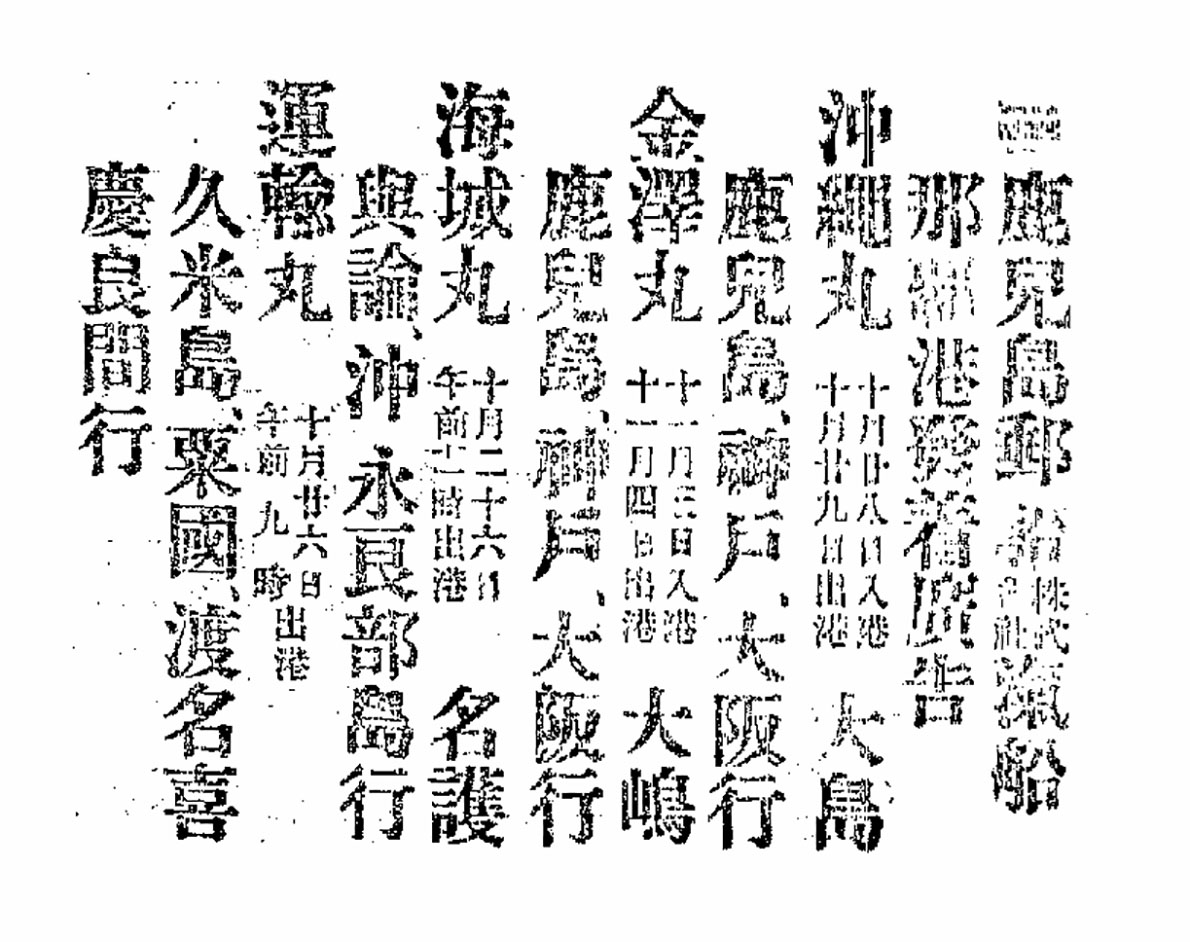 鹿兒島郵船株式會社滊舩
那覇港發着廣告
沖繩丸 十月廿八日入港 十月廿九日出港 大島
鹿兒島、神戸、大阪行
金澤丸 十一月三日入港 十一月四日出港 大嶋
鹿兒島、神戸、大阪行
海城丸 十月二十六日 午前十一時出港 名護
與論、沖永良部島行
運輸丸 十月廿六日 午前九時 出港
久米島、粟國、渡名喜
慶良間行